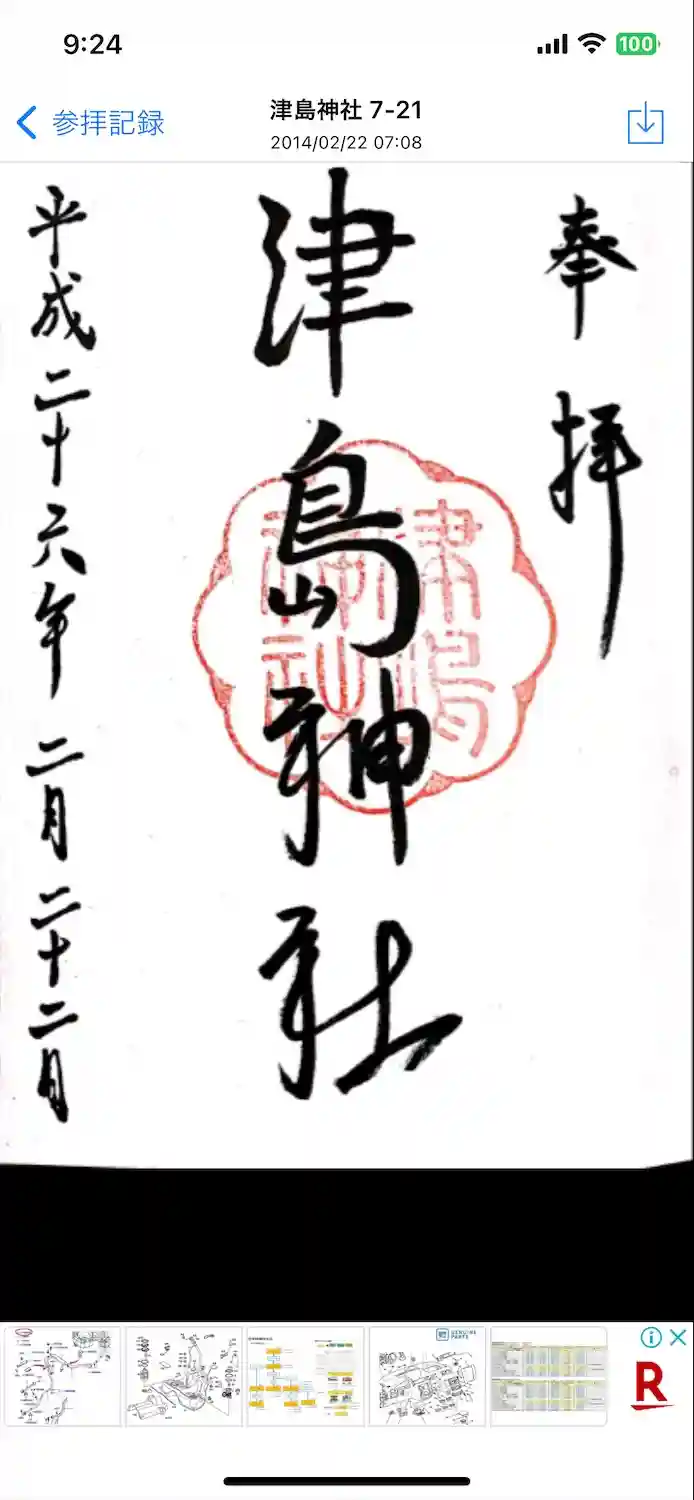 9:24
100
参拝記録
津島神社 7-21
2014/02/22 07:08
奉拝
津島神社
津嶋神社
平成二十六年二月二十二月
GM GENUINE
PARTS
R